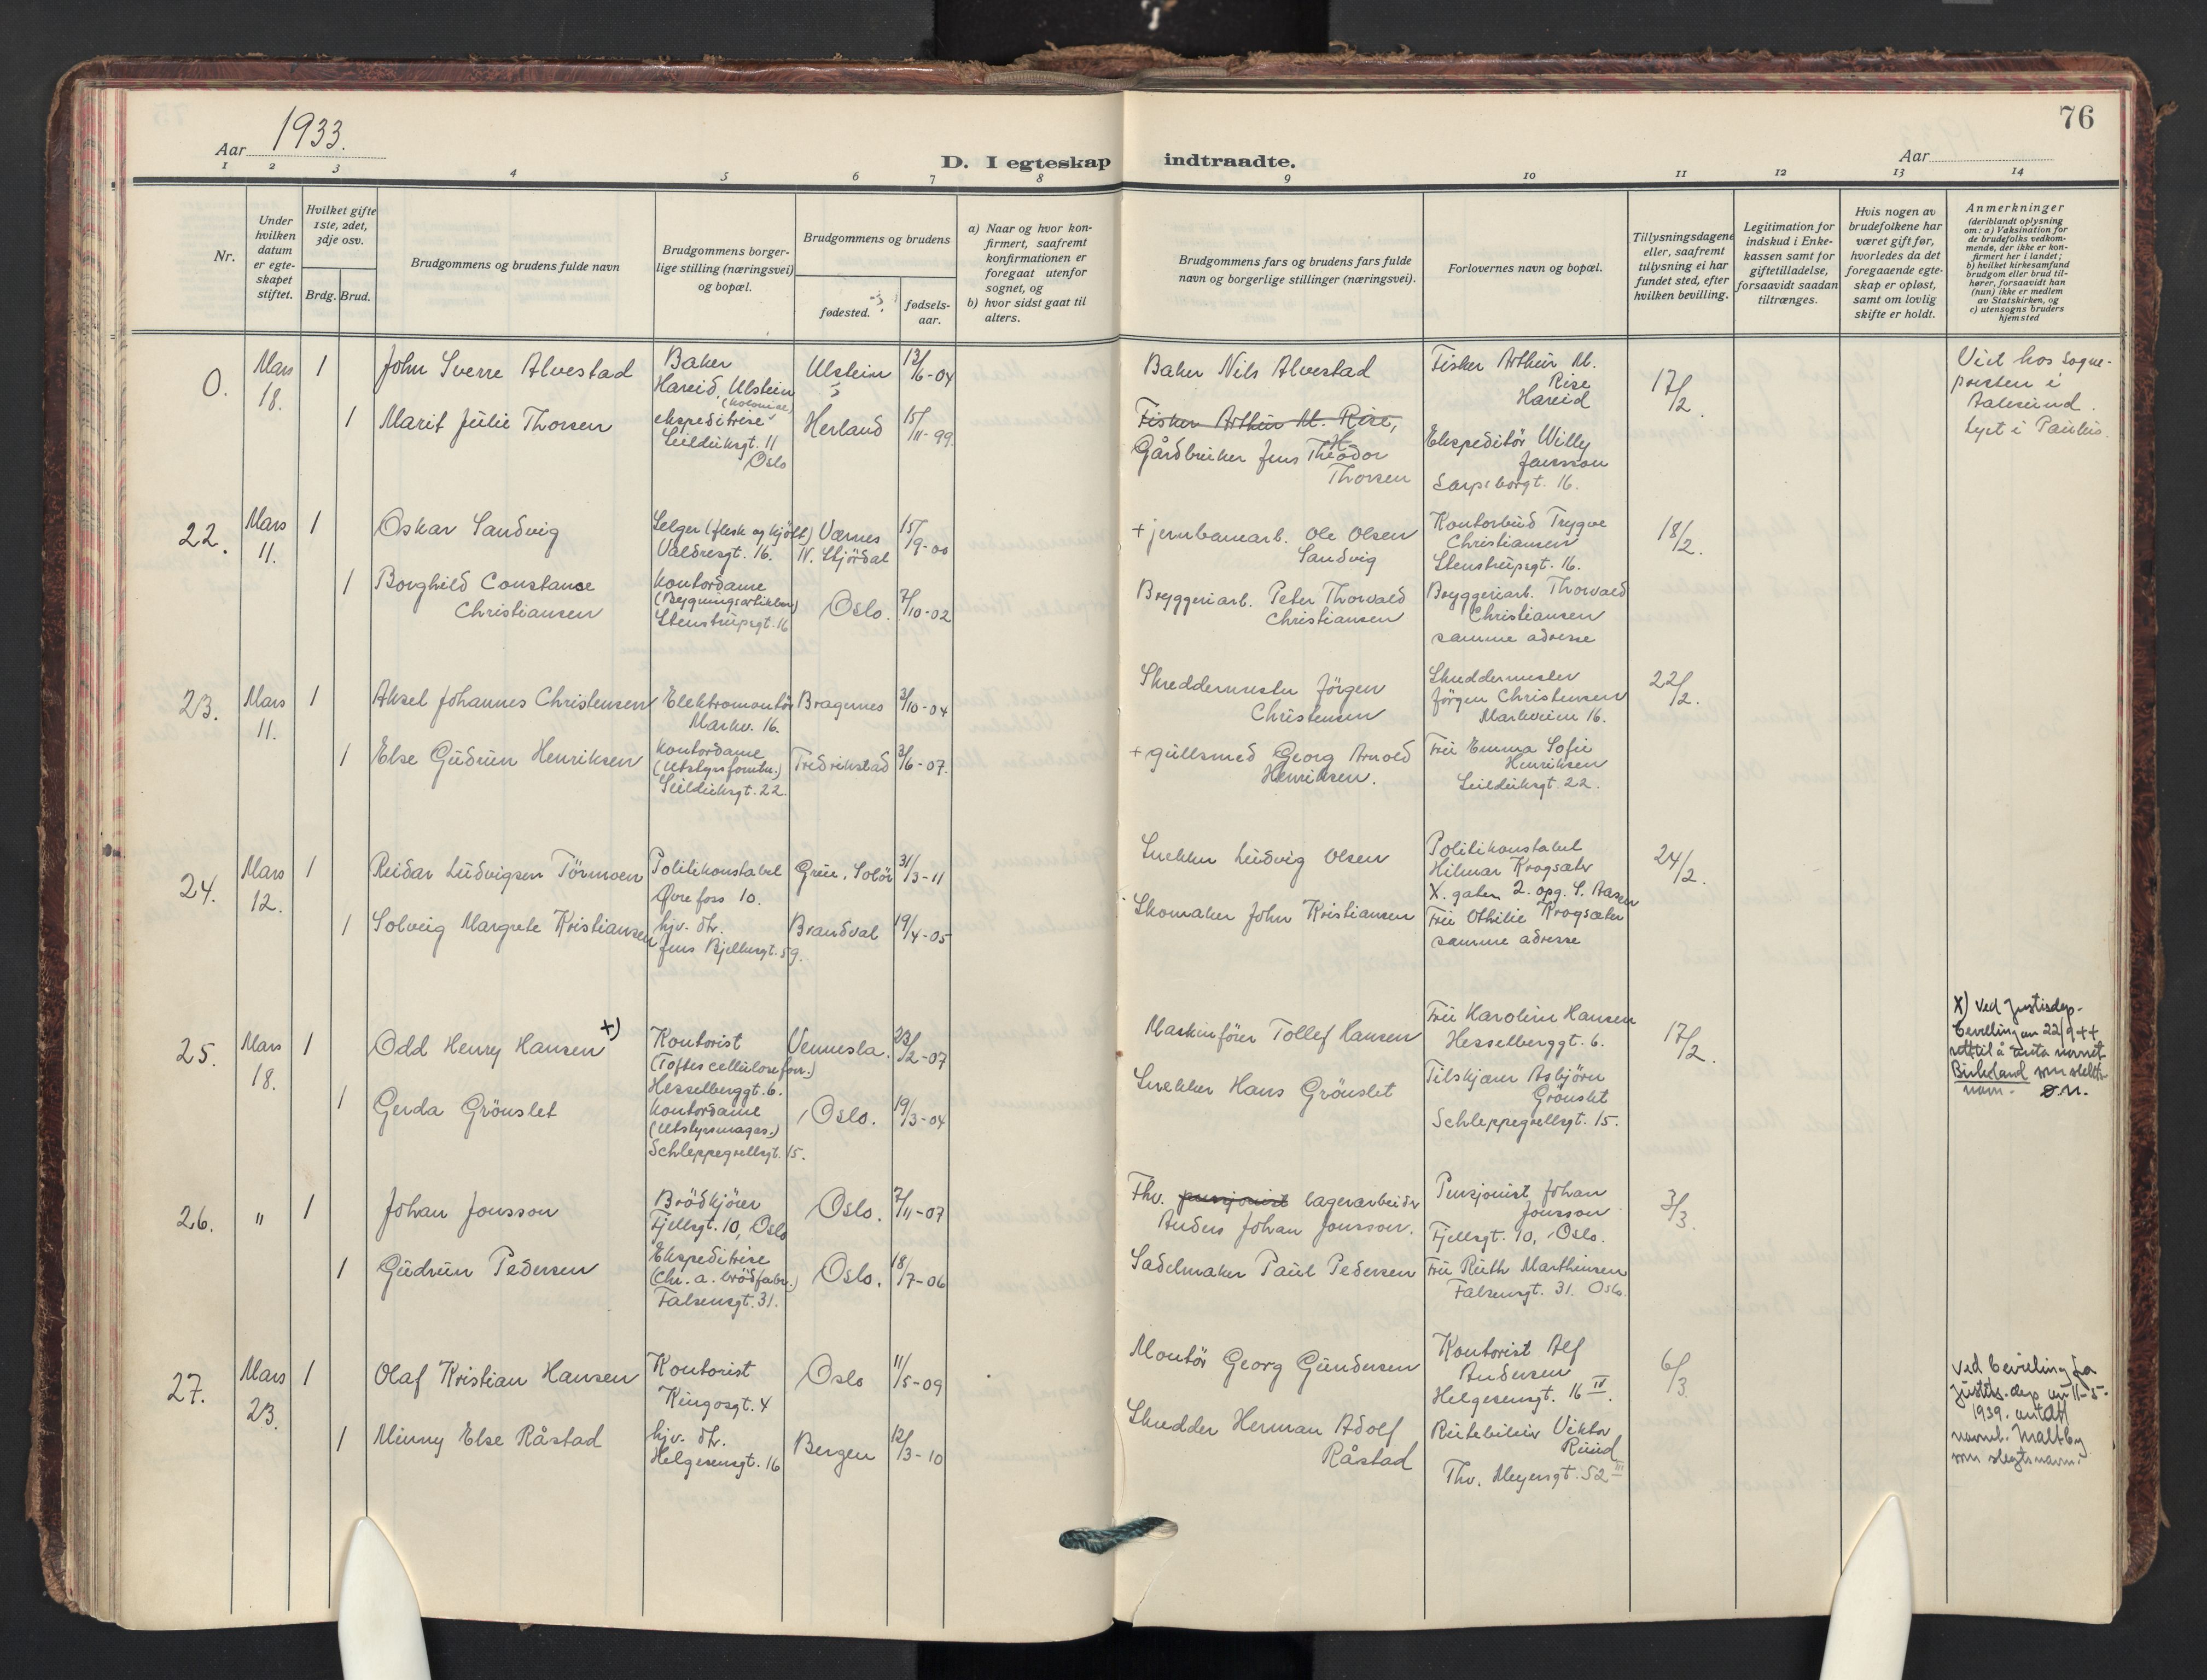 76
Aar 1933.
D. I egteskap indtraadte.
Aar
1 2 3 4 5 6 7 8 9 10 11 12 13 14
Nr.
Under hvilken datum er egteskapet stiftet.
Hvilket gifte 1ste, 2det, 3dje osv.
Brdg. Brud.
Brudgommens og brudens fulde navn
Brudgommens borgerlige stilling (næringsvei) og bopæl.
Brudgommens og brudens
fødested.
fødselsaar.
a) Naar og hvor konfirmert, saafremt konfirmationen er foregaat utenfor sognet, og
b) hvor sidst gaat til alters.
Brudgommens fars og brudens fars fulde navn og borgerlige stillinger (næringsvei).
Forlovernes navn og bopæl.
Tillysningsdagene eller, saafremt tillysning ei har fundet sted, efter hvilken bevilling.
Legitimation for indskud i Enkekassen samt for giftetilladelse, forsaavidt saadan tiltrænges.
Hvis nogen av brudefolkene har været gift før, hvorledes da det foregaaende egteskap er opløst, samt om lovlig skifte er holdt.
Anmerkninger
(deriblandt oplysning om: a) Vaksination for de brudefolks vedkommende, der ikke er konfirmert her i landet;
b) hvilket kirkesamfund brudgom eller brud tilhører, forsaavidt han (hun) ikke er medlem av Statskirken, og
c) utensogns bruders hjemsted
0.
Mars 18.
1
John Sverre Alvestad
Baker
Hareid, Ulstein
Ulstein
13/6-04
Baker Nils Alvestad
Fisker Arthur M. Rise
Hareid
17/2.
Viet hos sogne-
presten i
Aalesund.
Lyst i Paulus.
1
Marit Julie Thorsen
ekspeditrise (kolonial)
Seilduksgt. 11
Oslo
Herland
15/11-99.
Fisker Arthur M. Rise,
Gårdbruker Jens Theodor H.
Thorsen
Ekspeditör Willy
Jansson
Sarpsborgt. 16.
22.
Mars 11.
1
Oskar Sandvig
Selger (flesk og kjött)
Valdresgt. 16.
Værnes
N. Stjördal
15/9-00
+ jernbanearb. Ole Olsen
Sandvig
Kontorbud Trygve
Christiansen
Stenstrupsgt. 16.
18/2.
1
Borghild Constance
Christiansen
kontordame
(Bygningsartikler)
Stenstrupsgt. 16
Oslo.
7/10-02
Bryggeriarb. Peter Thorvald
Christiansen
Bryggeriarb. Thorvald
Christiansen
samme adresse
23.
Mars 11.
1
Aksel Johannes Christensen
Elektromontör
Markv. 16.
Bragernes
3/10-04
Skreddermester Jörgen
Christensen
Skreddermester
Jörgen Christensen
Markveien 16.
22/2.
1
Else Gudrun Henriksen
kontordame
(Utstyrsforretn.)
Seilduksgt. 22.
Fredrikstad
3/6-07.
+ gullsmed Georg Arnold
Henriksen.
Fru Emma Sofie
Henriksen
Seilduksgt. 22.
24.
Mars 12.
1
Reidar Ludvigsen Törmoen
Politikonstabel
Øvre foss 10.
Grue, Solör
31/3-11
Snekker Ludvig Olsen
Politikonstabel
Hilmar Krogsæter
X. gaten 2. opg. S. Aasen
24/2.
1
Solveig Margrete Kristiansen
hjv. dtr.
Jens Bjelkesgt. 59.
Brandval
19/4-05
Skomaker John Kristiansen
Fru Othilie Krogsæter
samme adresse
25.
Mars 18.
1
Odd Henry Hansen +)
Kontorist
(Toftes cellulosefor.)
Hesselberggt. 6.
Vennesla.
23/2-07
Maskinförer Tollef Hansen
Fru Karoline Hansen
Hesselberggt. 6.
17/2.
X) Ved Justisdep.
bevilling av 22/9 44
rett til å anta navnet
Birkeland som slekts-
navn. Ø.N.
1
Gerda Grönslet
kontordame
(Utstyrsmagas.)
Schleppegrellsgt. 15.
Oslo.
19/3-04
Snekker Hans Grönslet
Tilskjærer Asbjörn
Grönslet
Schleppegrellsgt. 15.
26.
"
1
Johan Jonsson
Brödkjörer
Fjellsgt. 10, Oslo
Oslo.
7/11-07
Fhv. pensjonist lagerarbeider
Anders Johan Jonsson.
Pensjonist Johan
Jonsson
Fjellsgt. 10, Oslo.
3/3.
1
Gudrun Pedersen
Ekspeditrise
(Chr.a. brödfabr.)
Falsensgt. 31.
Oslo.
18/7-06
Sadelmaker Paul Pedersen
Fru Ruth Marthinsen
Falsensgt. 31. Oslo.
27.
Mars 23.
1
Olaf Kristian Hansen
Kontorist
Kingosgt. 4
Oslo
11/5-09
Montör Georg Gundersen
Kontorist Alf
Andersen
Helgesensgt. 16 IV.
6/3
Ved bevilling fra
Justits.dep. av 11-5-
1939. antatt
navnet Maltby
som slegtsnavn.
1
Minny Else Råstad
hjv. dtr.
Helgesensgt. 16
Bergen
12/3-10
Skredder Herman Adolf
Råstad
Rutebileier Viktor
Ruud
Thv. Meyersgt. 52 III